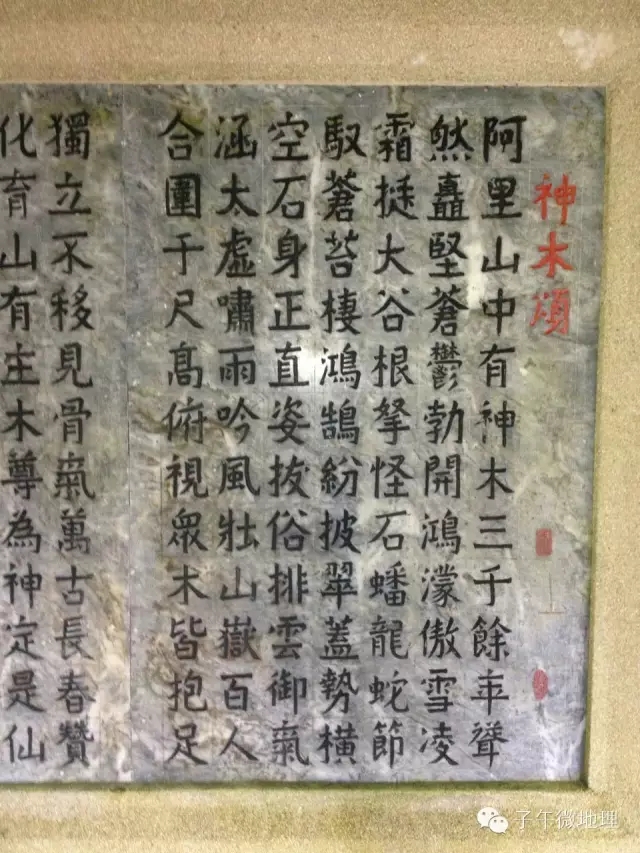 神木頌
阿里山中有神木三千餘年聳
然矗堅蒼鬱勃開鴻濛傲雪凌
霜挺大谷根拏怪石蟠龍蛇節
馭蒼苔棲鴻鵠紛披翠蓋勢橫
空石身正直姿拔俗排雲御氣
涵太虛嘯雨吟風壯山嶽百人
合圍千尺高俯視眾木皆抱足
獨立不移見骨氣萬古長春贊
化育山有主木尊為神定是仙
子午微地理